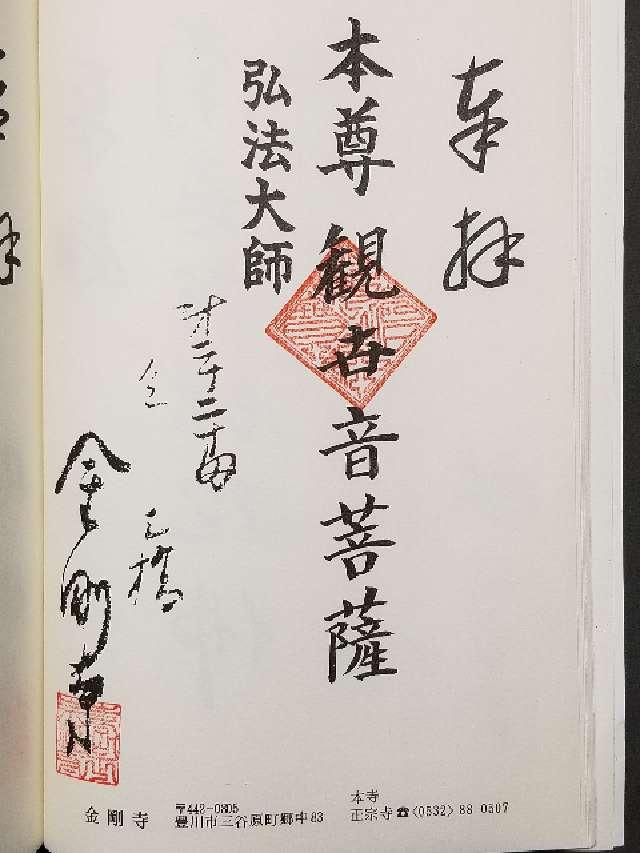 奉拝
本尊観世音菩薩
弘法大師
才二十二番
金剛寺
金剛寺
〒442-0805
豊川市三谷原町郷中83
本寺
正宗寺☎(0532)88 0507